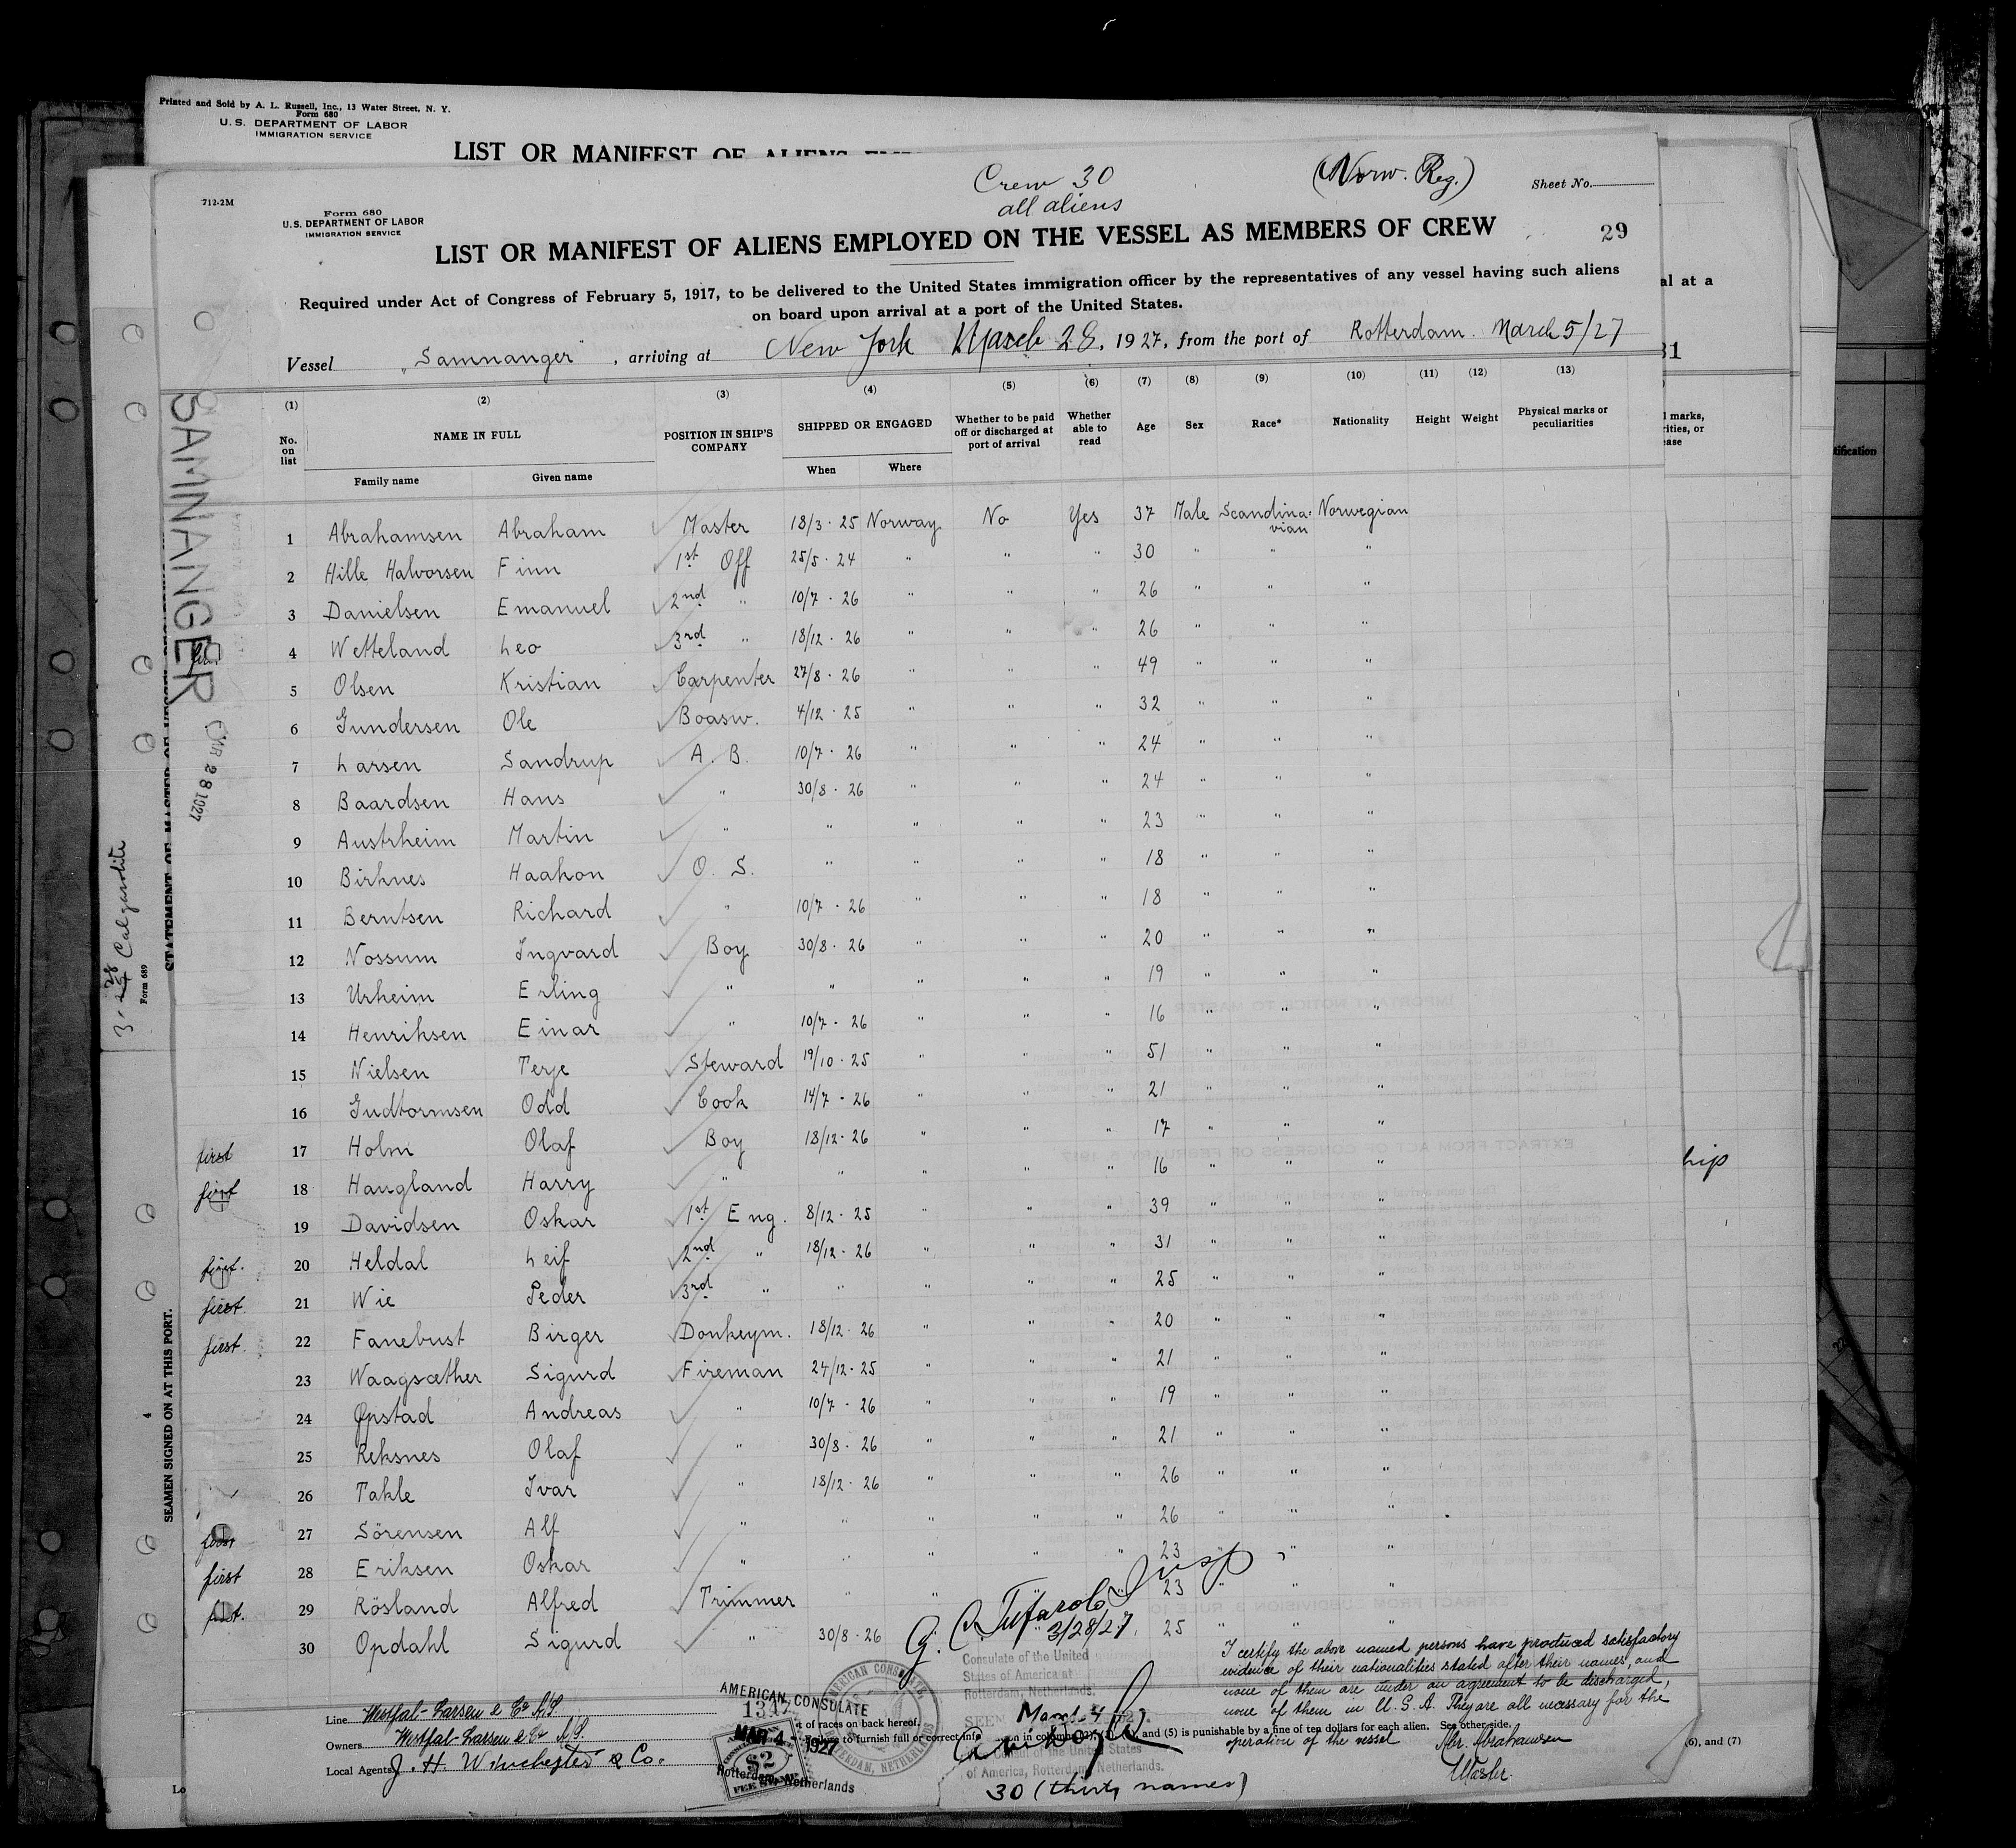 Printed and Sold by A. L. Russell, Inc., 13 Water Street, N. Y.
Form 680
U. S. DEPARTMENT OF LABOR
IMMIGRATION SERVICE
LIST OR MANIFEST OF ALIENS
Crew 30
all aliens
(Norw. Reg.)
Sheet No.
712-2M
Form 680
U.S. DEPARTMENT OF LABOR
IMMIGRATION SERVICE
29
LIST OR MANIFEST OF ALIENS EMPLOYED ON THE VESSEL AS MEMBERS OF CREW
Required under Act of Congress of February 5, 1917, to be delivered to the United States immigration officer by the representatives of any vessel having such aliens
on board upon arrival at a port of the United States.
al at a
Vessel "Samnanger", arriving at New York March 28, 1927, from the port of Rotterdam. March 5/27
31
(1) (2) (3) (4) (5) (6) (7) (8) (9) (10) (11) (12) (13)
No. on list NAME IN FULL POSITION IN SHIP'S COMPANY SHIPPED OR ENGAGED Whether to be paid off or discharged at port of arrival Whether able to read Age Sex Race* Nationality Height Weight Physical marks or peculiarities
Family name Given name When Where
1 Abrahamsen Abraham Master 18/3 · 25 Norway No Yes 37 Male Scandinavian Norwegian
2 Hille Halvorsen Finn 1st Off 25/5 · 24 " " " 30 " " "
3 Danielsen Emanuel 2nd " 10/7 · 26 " " " 26 " " "
4 Wetteland Leo 3rd " 18/12 · 26 " " " 26 " " "
5 Olsen Kristian Carpenter 27/8 · 26 " " " 49 " " "
6 Gundersen Ole Boasw. 4/12 · 25 " " " 32 " " "
7 Larsen Sandrup A. B. 10/7 · 26 " " " 24 " " "
8 Baardsen Hans " 30/8 · 26 " " " 24 " " "
9 Austrheim Martin " " " " " 23 " " "
10 Birknes Haakon O. S. " " " " 18 " " "
11 Berntsen Richard " 10/7 · 26 " " " 18 " " "
12 Nossum Ingvard Boy 30/8 · 26 " " " 20 " " "
13 Urheim Erling " " " " " 19 " " "
14 Henriksen Einar " 10/7 · 26 " " " 16 " " "
15 Nielsen Terje Steward 19/10 · 25 " " " 51 " " "
16 Gudtormsen Odd Cook 14/7 · 26 " " " 21 " " "
first 17 Holm Olaf Boy 18/12 · 26 " " " 17 " " "
first 18 Haugland Harry " " " " " 16 " " "
19 Davidsen Oskar 1st Eng. 8/12 · 25 " " " 39 " " "
first. 20 Heldal Leif 2nd " 18/12 · 26 " " " 31 " " "
first. 21 Wie Peder 3rd " " " " " 25 " " "
first. 22 Fanebust Birger Donkeym. 18/12 · 26 " " " 20 " " "
23 Waagsæther Sigurd Fireman 24/12 · 25 " " " 21 " " "
24 Øpstad Andreas " 10/7 · 26 " " " 19 " " "
25 Reksnes Olaf " 30/8 · 26 " " " 21 " " "
26 Takle Ivar " 18/12 · 26 " " " 26 " " "
27 Sörensen Alf " " " " " 26 " " "
first 28 Eriksen Oskar " " " " " 23 " " "
first. 29 Rösland Alfred Trimmer " " " " 23 " " "
30 Opdahl Sigurd " 30/8 · 26 25 " " "
3/28/27.
SAMNANGER
MR 28 1927
Form 689
SEAMEN SIGNED ON AT THIS PORT.
4
hip
I certify the above named persons have produced satisfactory
evidence of their nationalities stated after their names, and
none of them are under an agreement to be discharged,
none of them in U. S. A. They are all necessary for the
operation of the vessel
Abr. Abrahamsen
Master.
Consulate of the United
States of America at
Rotterdam, Netherlands.
SEEN
March 4
of the United States
of America, Rotterdam, Netherlands.
30 (thirty names)
AMERICAN CONSULATE
1317
MAR 4 - 1927
Rotterdam, Netherlands
$2
FEE STAMP
AMERICAN CONSULATE, ROTTERDAM, NETHERLANDS
t of races on back hereof.
Failure to furnish full or correct info in columns and (5) is punishable by a fine of ten dollars for each alien. See other side.
Line Westfal-Larsen & Co A/S.
Owners Westfal-Larsen & Co A/S.
Local Agents J. H. Winchester & Co.
(6), and (7)
Lo